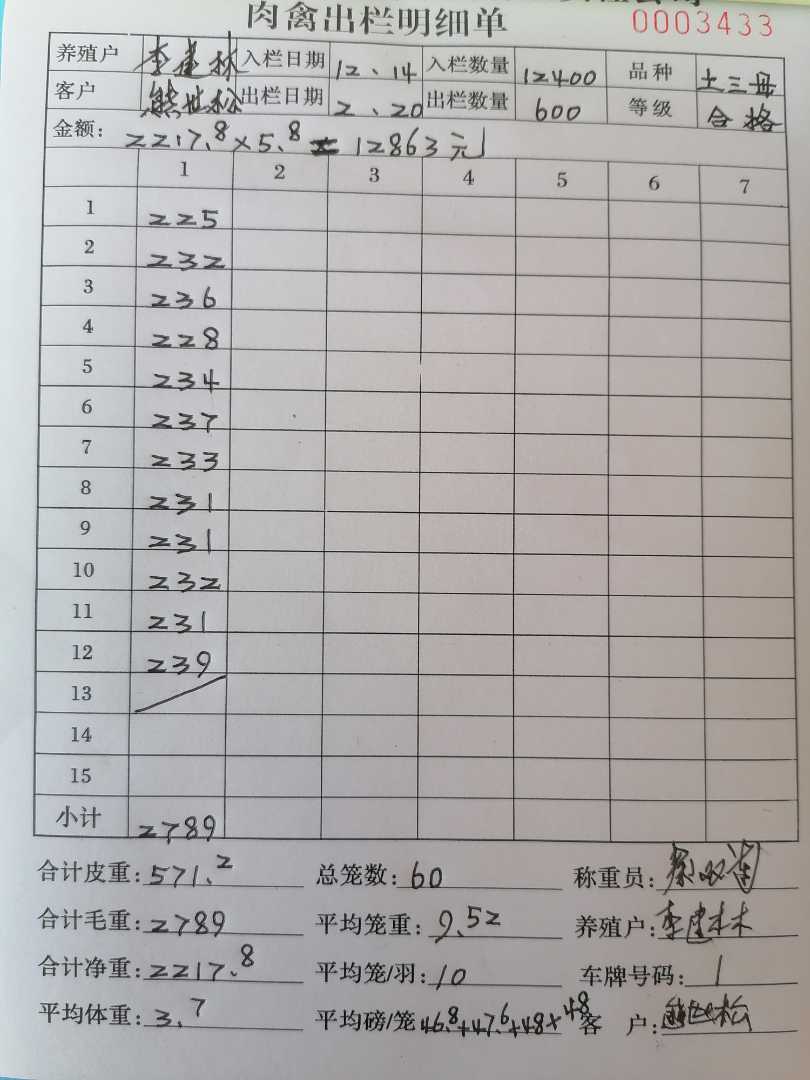 肉禽出栏明细单 0003433
养殖户 李建林 入栏日期 12、14 入栏数量 12400 品种 土三母
客户 熊世松 出栏日期 2、20 出栏数量 600 等级 合格
金额: 2217.8×5.8=12863元
1 2 3 4 5 6 7
1 225
2 232
3 236
4 228
5 234
6 237
7 233
8 231
9 231
10 232
11 231
12 239
13
14
15
小计 2789
合计皮重: 571.2 总笼数: 60 称重员:
合计毛重: 2789 平均笼重: 9.52 养殖户: 李建林
合计净重: 2217.8 平均笼/羽: 10 车牌号码: 1
平均体重: 3.7 平均磅/笼 46.8+47.6+48+48 客 户: 熊世松